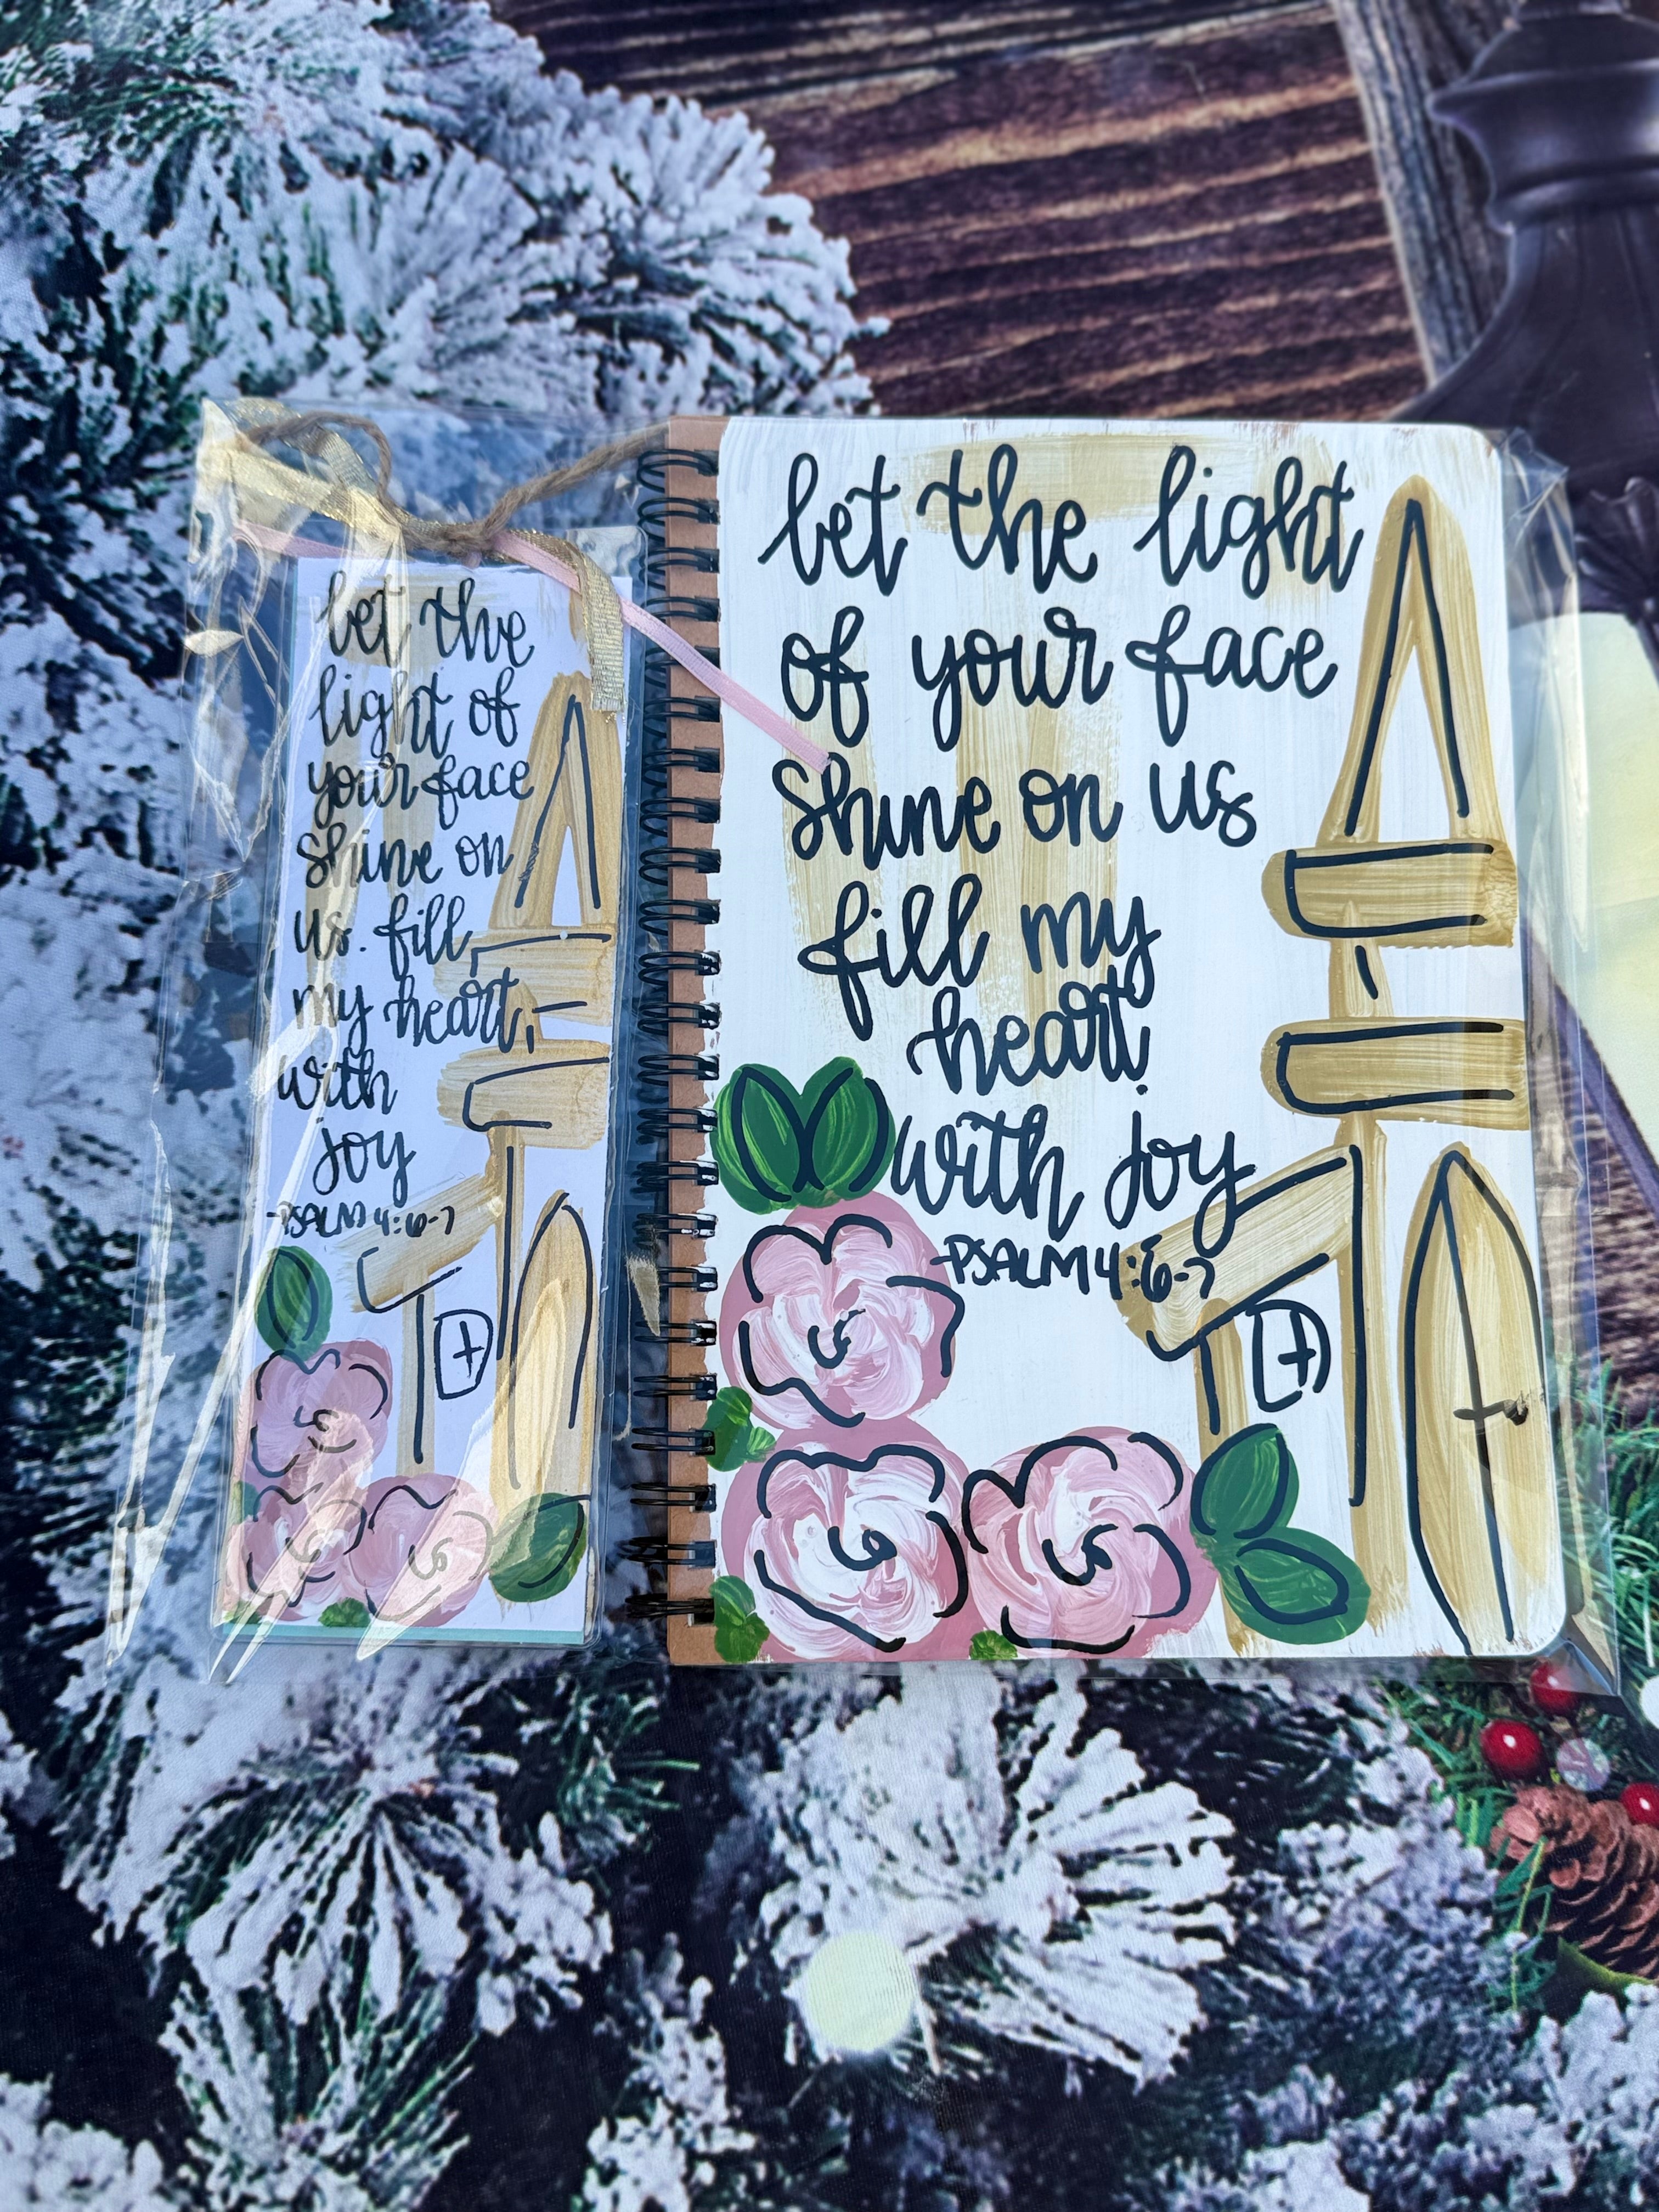 let the
light of
your face
shine on
us. fill
my heart
with
joy
-PSALM 4:6-7
let the light
of your face
shine on us
fill my
heart
with joy
-PSALM 4:6-7